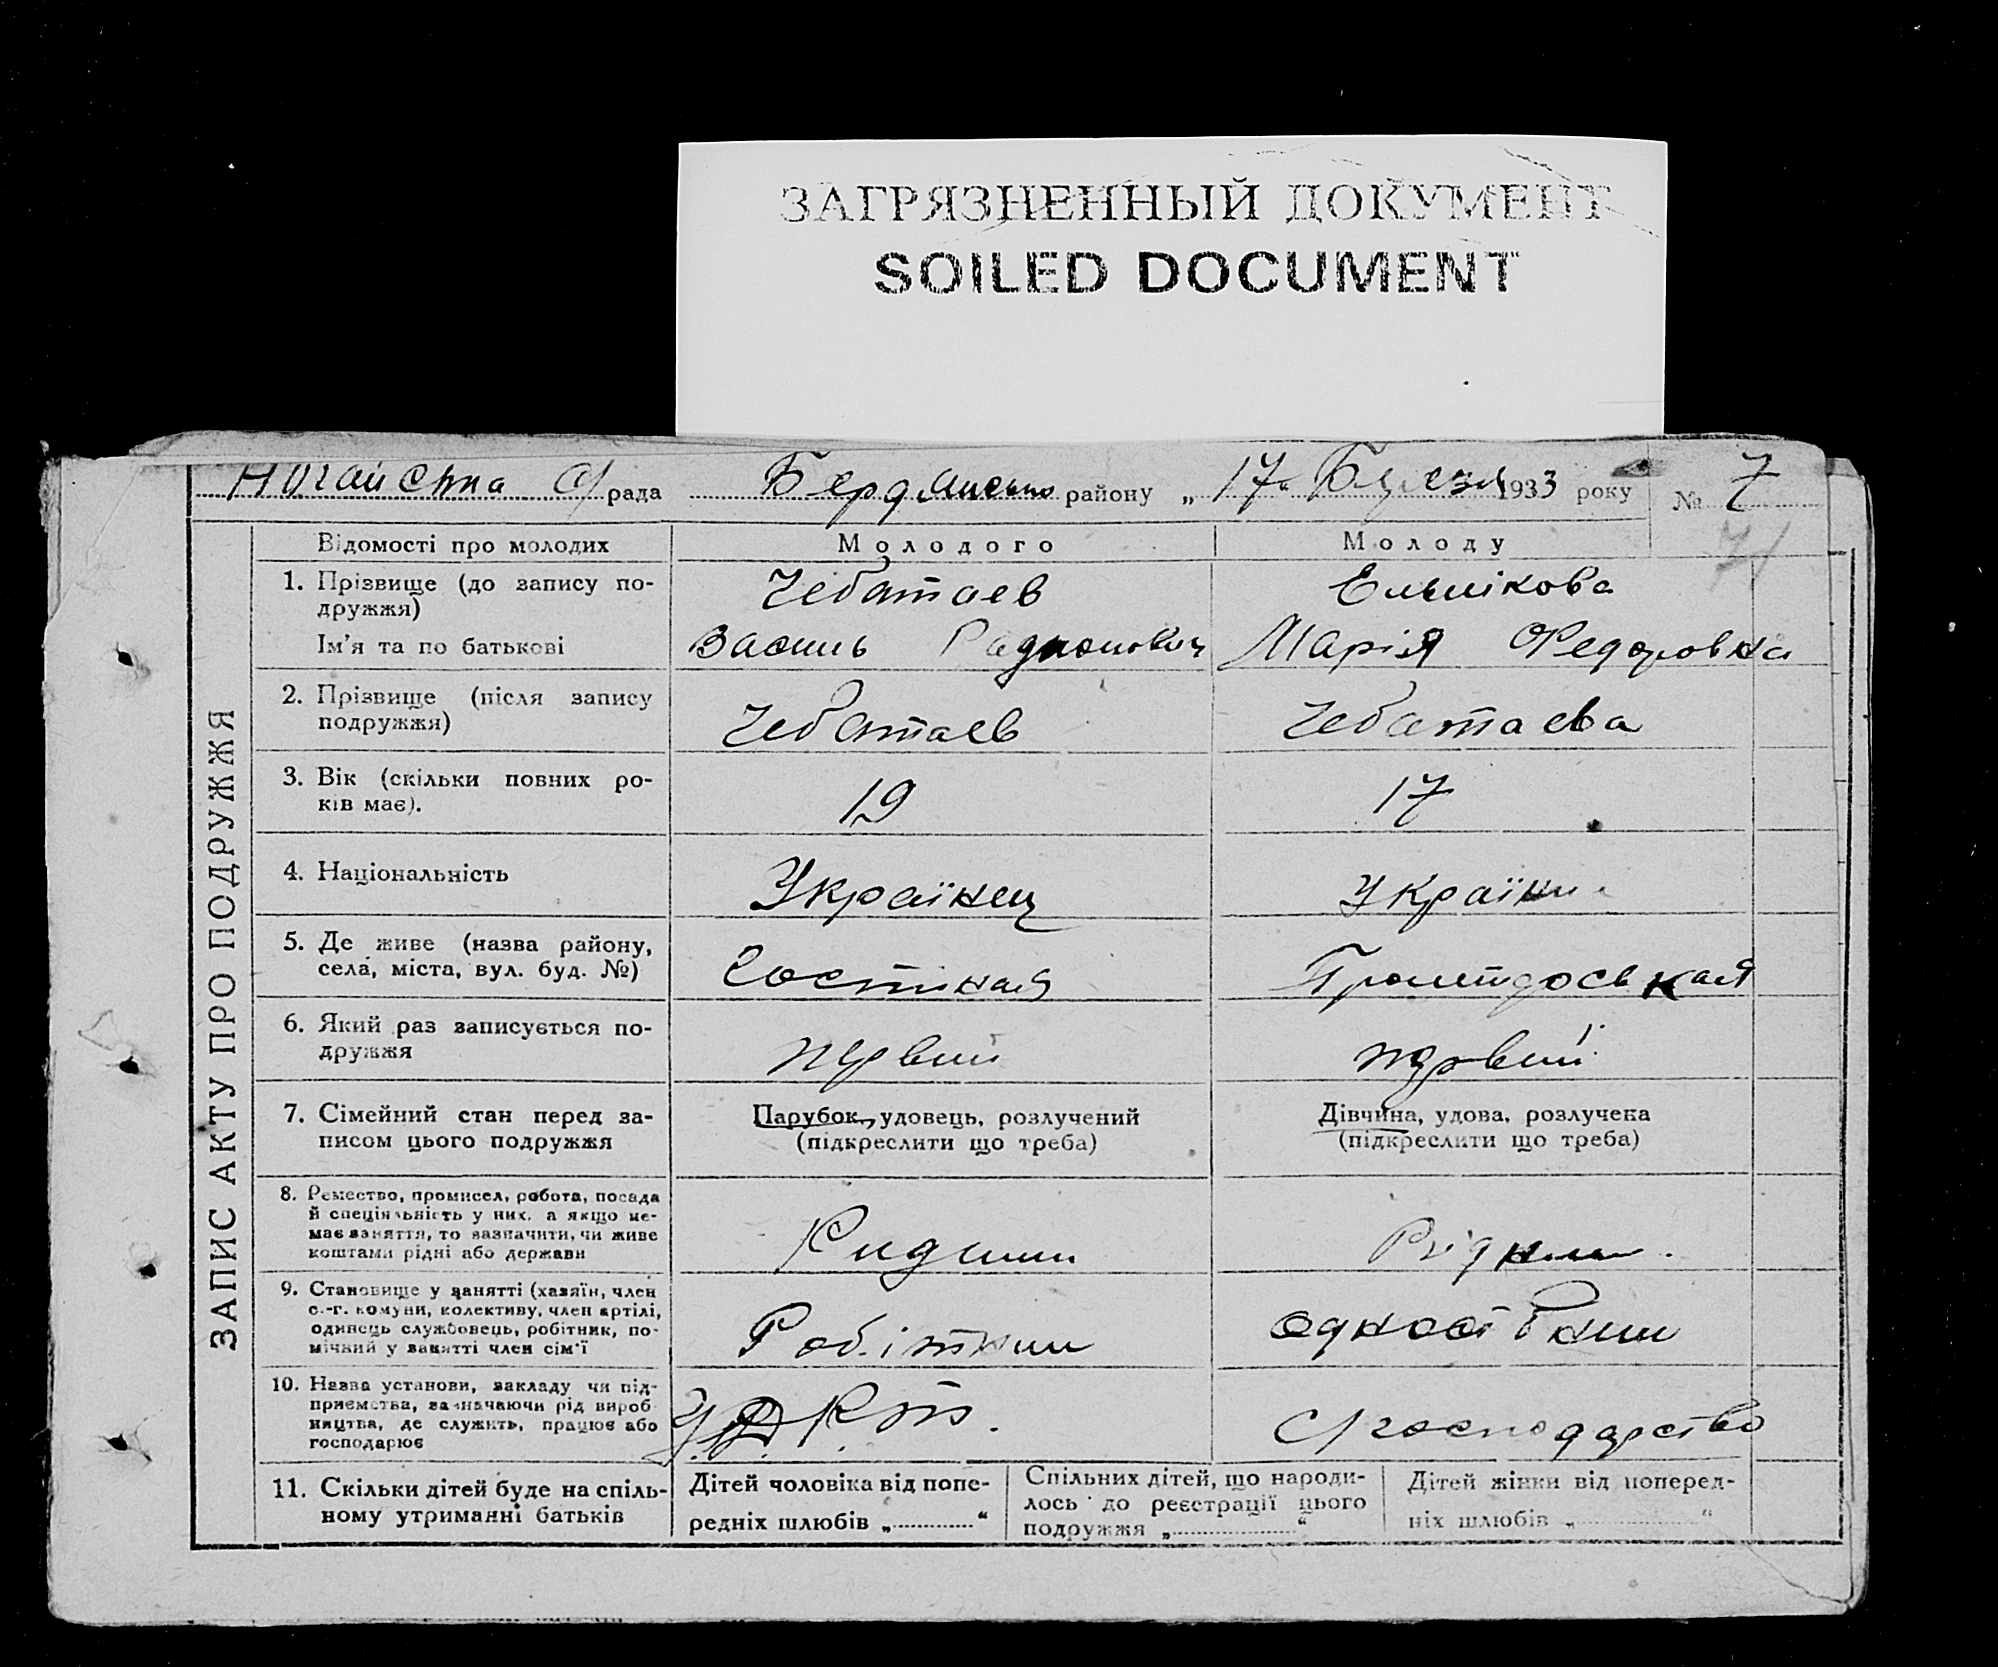 ЗАГРЯЗНЕННЫЙ ДОКУМЕНТ
SOILED DOCUMENT
Ногайська С/рада Бердянсько району „17“ Березня 1933 року № 7
71
ЗАПИС АКТУ ПРО ПОДРУЖЖЯ
Відомості про молодих Молодого Молоду
1. Прізвище (до запису по-
дружжя)
Чебатаев Ельнікова
Ім'я та по батькові Василь Радионович Марія Федоровна
2. Прізвище (після запису
подружжя)
Чебатаев Чебатаева
3. Вік (скільки повних ро-
ків має).
19 17
4. Національність Українец Україн
5. Де живе (назва району,
села, міста, вул. буд. №)
6. Який раз записується по-
дружжя
первий первий
7. Сімейний стан перед за-
писом цього подружжя
Парубок, удовець, розлучений
(підкреслити що треба)
Дівчина, удова, розлучена
(підкреслити що треба)
8. Ремество, промисел, робота, посада
й спеціяльність у них, а якщо не-
має заняття, то зазначити, чи живе
коштами рідні або держави
Рідним
9. Становище у занятті (хазяїн, член
с.-г. комуни, колективу, член артілі,
одинець службовець, робітник, по-
мічний у занятті член сім'ї
Робітник
10. Назва установи, закладу чи під-
приємства, зазначаючи рід вироб-
ництва, де служить, працює або
господарює
С/господарство
11. Скільки дітей буде на спіль-
ному утриманні батьків
Дітей чоловіка від попе-
редніх шлюбів „............“
Спільних дітей, що народи-
лось до реєстрації цього
подружжя „............“
Дітей жінки від поперед-
ніх шлюбів „............“